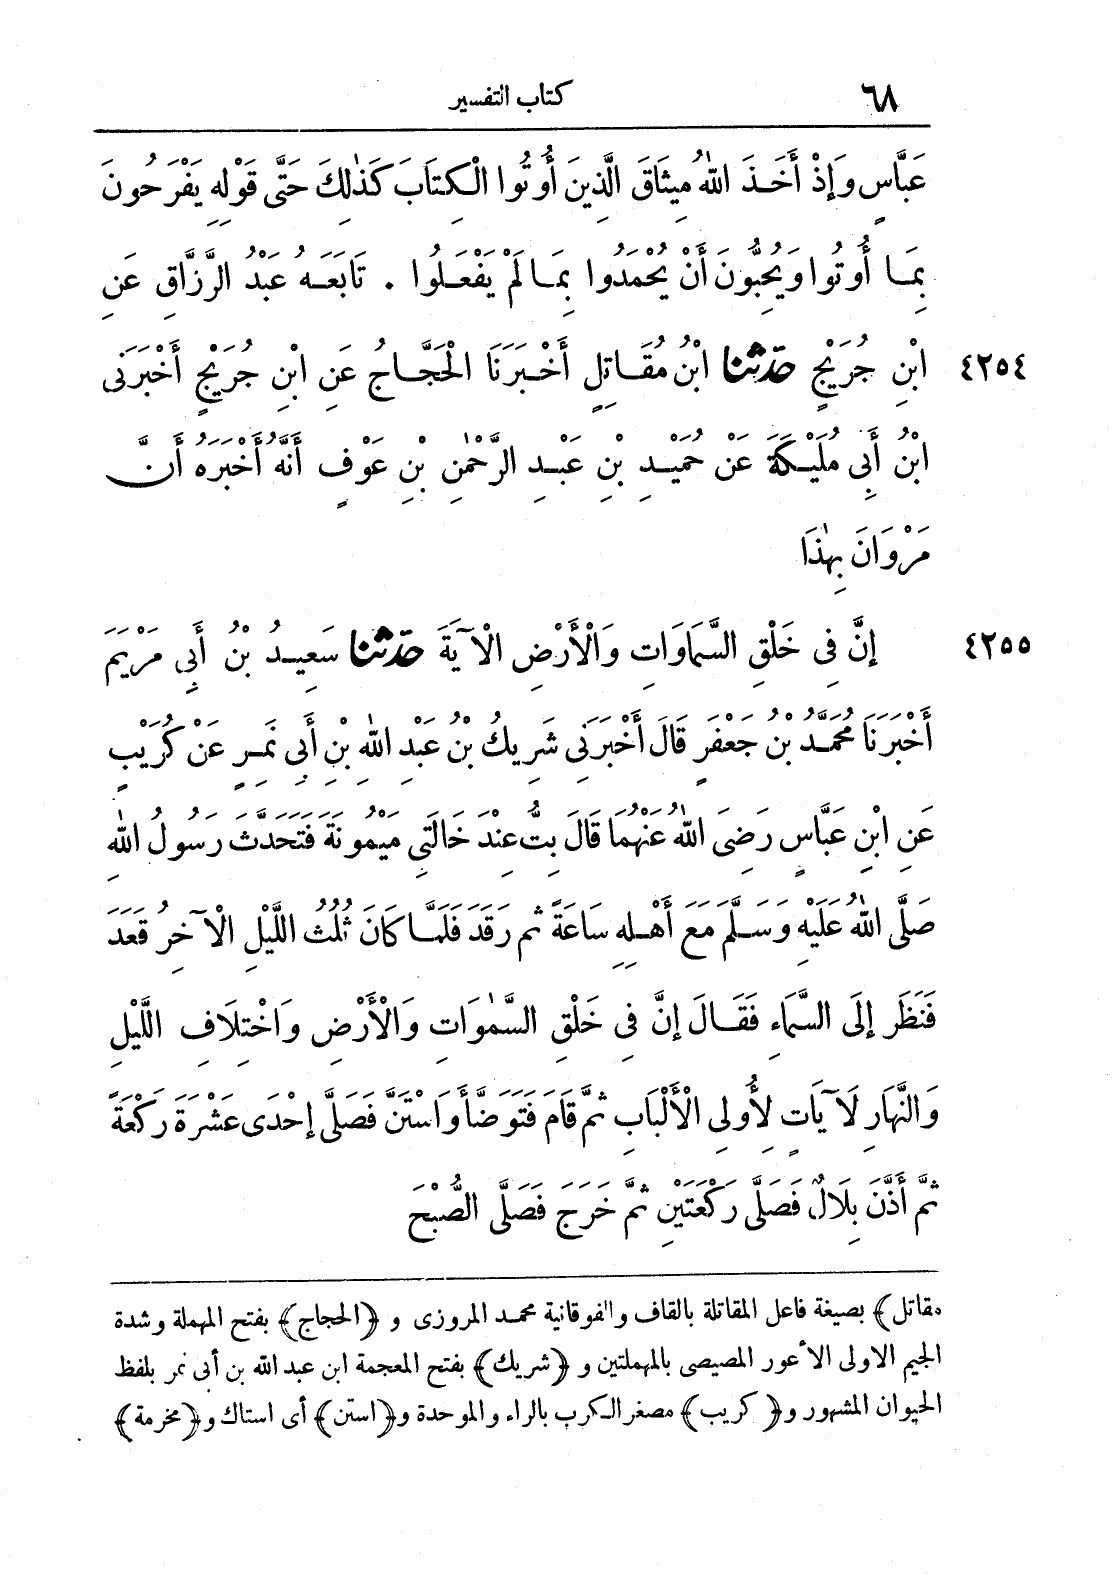 ٦٨ كتاب التفسير
عَبَّاسٍ وَإِذْ أَخَذَ اللهُ مِيثَاقَ الَّذِينَ أُوتُوا الْكِتَابَ كَذٰلِكَ حَتَّى قَوْلِهِ يَفْرَحُونَ
بِمَا أُوتُوا وَيُحِبُّونَ أَنْ يُحْمَدُوا بِمَا لَمْ يَفْعَلُوا . تَابَعَهُ عَبْدُ الرَّزَّاقِ عَنِ
٤٢٥٤ ابْنِ جُرَيْجٍ حَدَّثَنَا ابْنُ مُقَاتِلٍ أَخْبَرَنَا الْحَجَّاجُ عَنِ ابْنِ جُرَيْجٍ أَخْبَرَنِى
ابْنُ أَبِى مُلَيْكَةَ عَنْ حُمَيْدِ بْنِ عَبْدِ الرَّحْمٰنِ بْنِ عَوْفٍ أَنَّهُ أَخْبَرَهُ أَنَّ
مَرْوَانَ بِهٰذَا
٤٢٥٥ إِنَّ فِى خَلْقِ السَّمَاوَاتِ وَالْأَرْضِ الْآيَةَ حَدَّثَنَا سَعِيدُ بْنُ أَبِى مَرْيَمَ
أَخْبَرَنَا مُحَمَّدُ بْنُ جَعْفَرٍ قَالَ أَخْبَرَنِى شَرِيكُ بْنُ عَبْدِ اللهِ بْنِ أَبِى نَمِرٍ عَنْ كُرَيْبٍ
عَنِ ابْنِ عَبَّاسٍ رَضِىَ اللهُ عَنْهُمَا قَالَ بِتُّ عِنْدَ خَالَتِى مَيْمُونَةَ فَتَحَدَّثَ رَسُولُ اللهِ
صَلَّى اللهُ عَلَيْهِ وَسَلَّمَ مَعَ أَهْلِهِ سَاعَةً ثُمَّ رَقَدَ فَلَمَّا كَانَ ثُلُثُ اللَّيْلِ الْآخِرُ قَعَدَ
فَنَظَرَ إِلَى السَّمَاءِ فَقَالَ إِنَّ فِى خَلْقِ السَّمٰوَاتِ وَالْأَرْضِ وَاخْتِلَافِ اللَّيْلِ
وَالنَّهَارِ لَآيَاتٍ لِأُولِى الْأَلْبَابِ ثُمَّ قَامَ فَتَوَضَّأَ وَاسْتَنَّ فَصَلَّى إِحْدَى عَشْرَةَ رَكْعَةً
ثُمَّ أَذَّنَ بِلَالٌ فَصَلَّى رَكْعَتَيْنِ ثُمَّ خَرَجَ فَصَلَّى الصُّبْحَ
مقاتل﴾ بصيغة فاعل المقاتلة بالقاف والفوقانية محمد المروزى و ﴿الحجاج﴾ بفتح المهملة وشدة
الجيم الاولى الأعور المصيصى بالمهملتين و ﴿شريك﴾ بفتح المعجمة ابن عبد الله بن أبى نمر بلفظ
الحيوان المشهور و﴿كريب﴾ مصغر الكرب بالراء والموحدة و﴿استن﴾ أى استاك و﴿مخرمة﴾